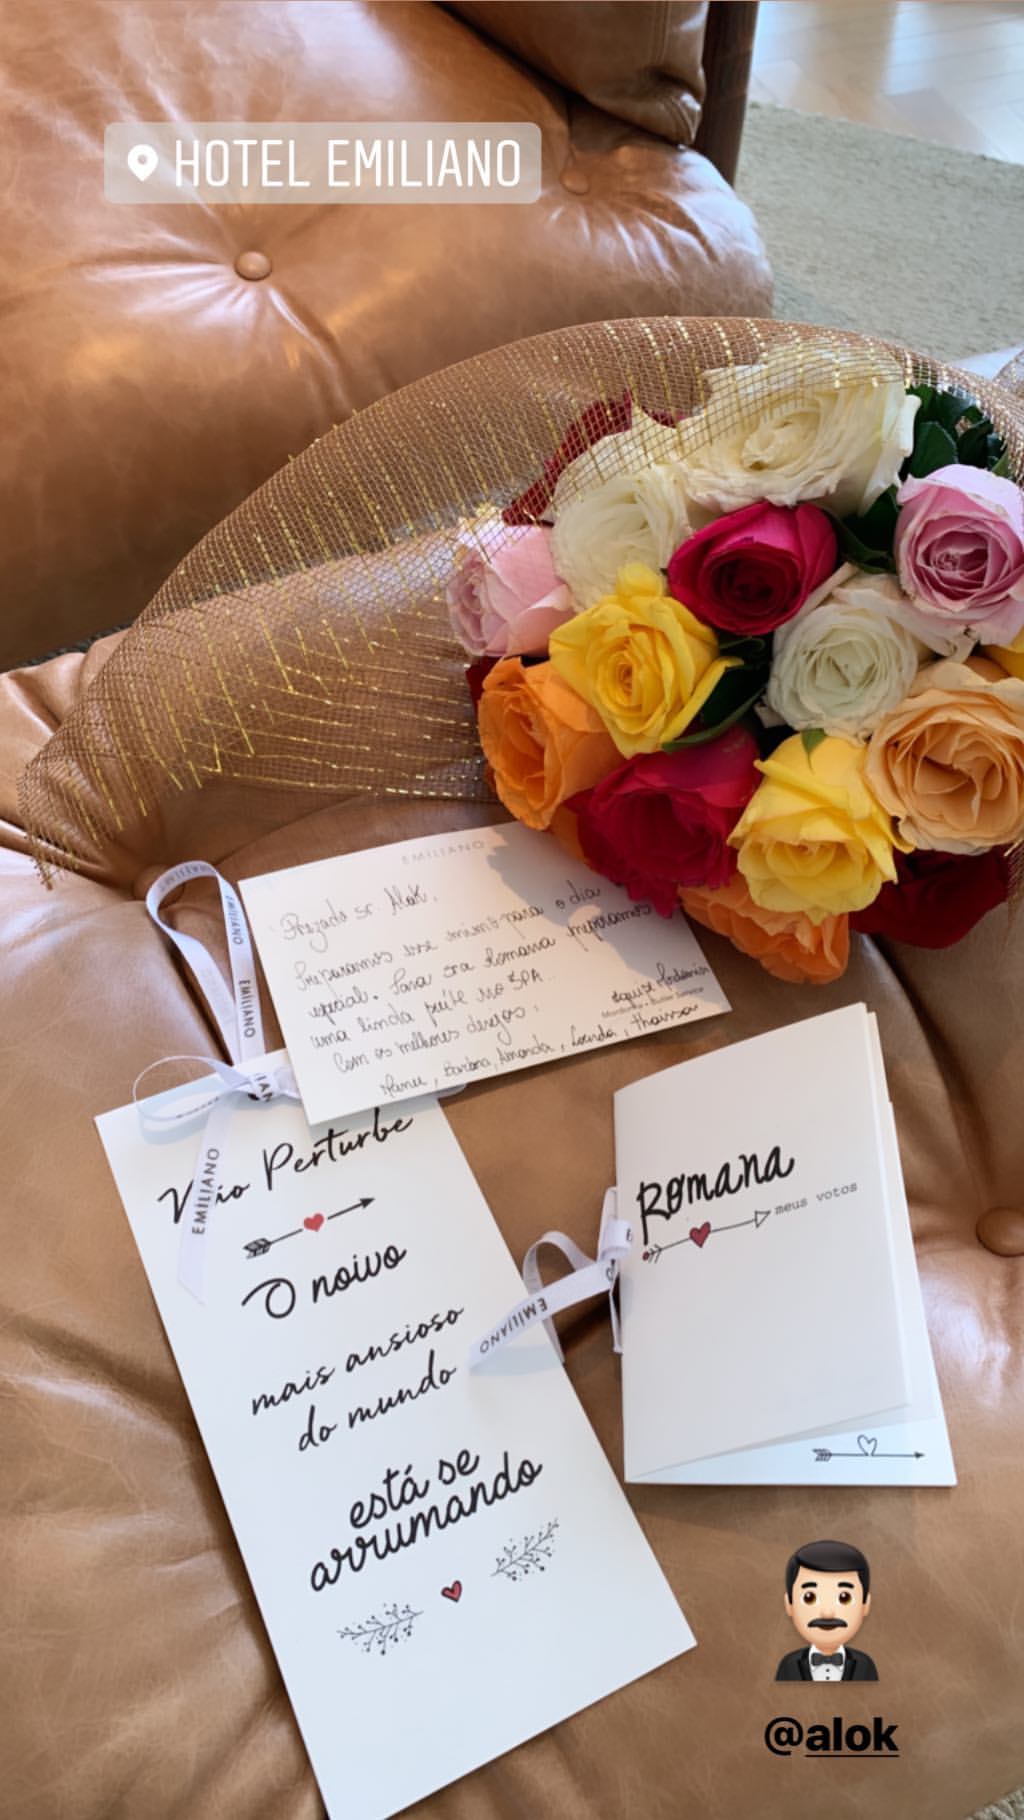 HOTEL EMILIANO
EMILIANO
Prezado sr. Alok,
Preparamos esse mimo para o dia
especial. Para sra Romana preparamos
uma linda suíte no SPA.
Com os melhores desejos:
Mordomia • Butler Service
Manu, Barbara, Amanda, Lourda, Thaissa
EMILIANO
EMILIANO
EMILIANO
Não Perturbe
O noivo
mais ansioso
do mundo
está se
arrumando
EMILIANO
Romana
meus votos
@alok